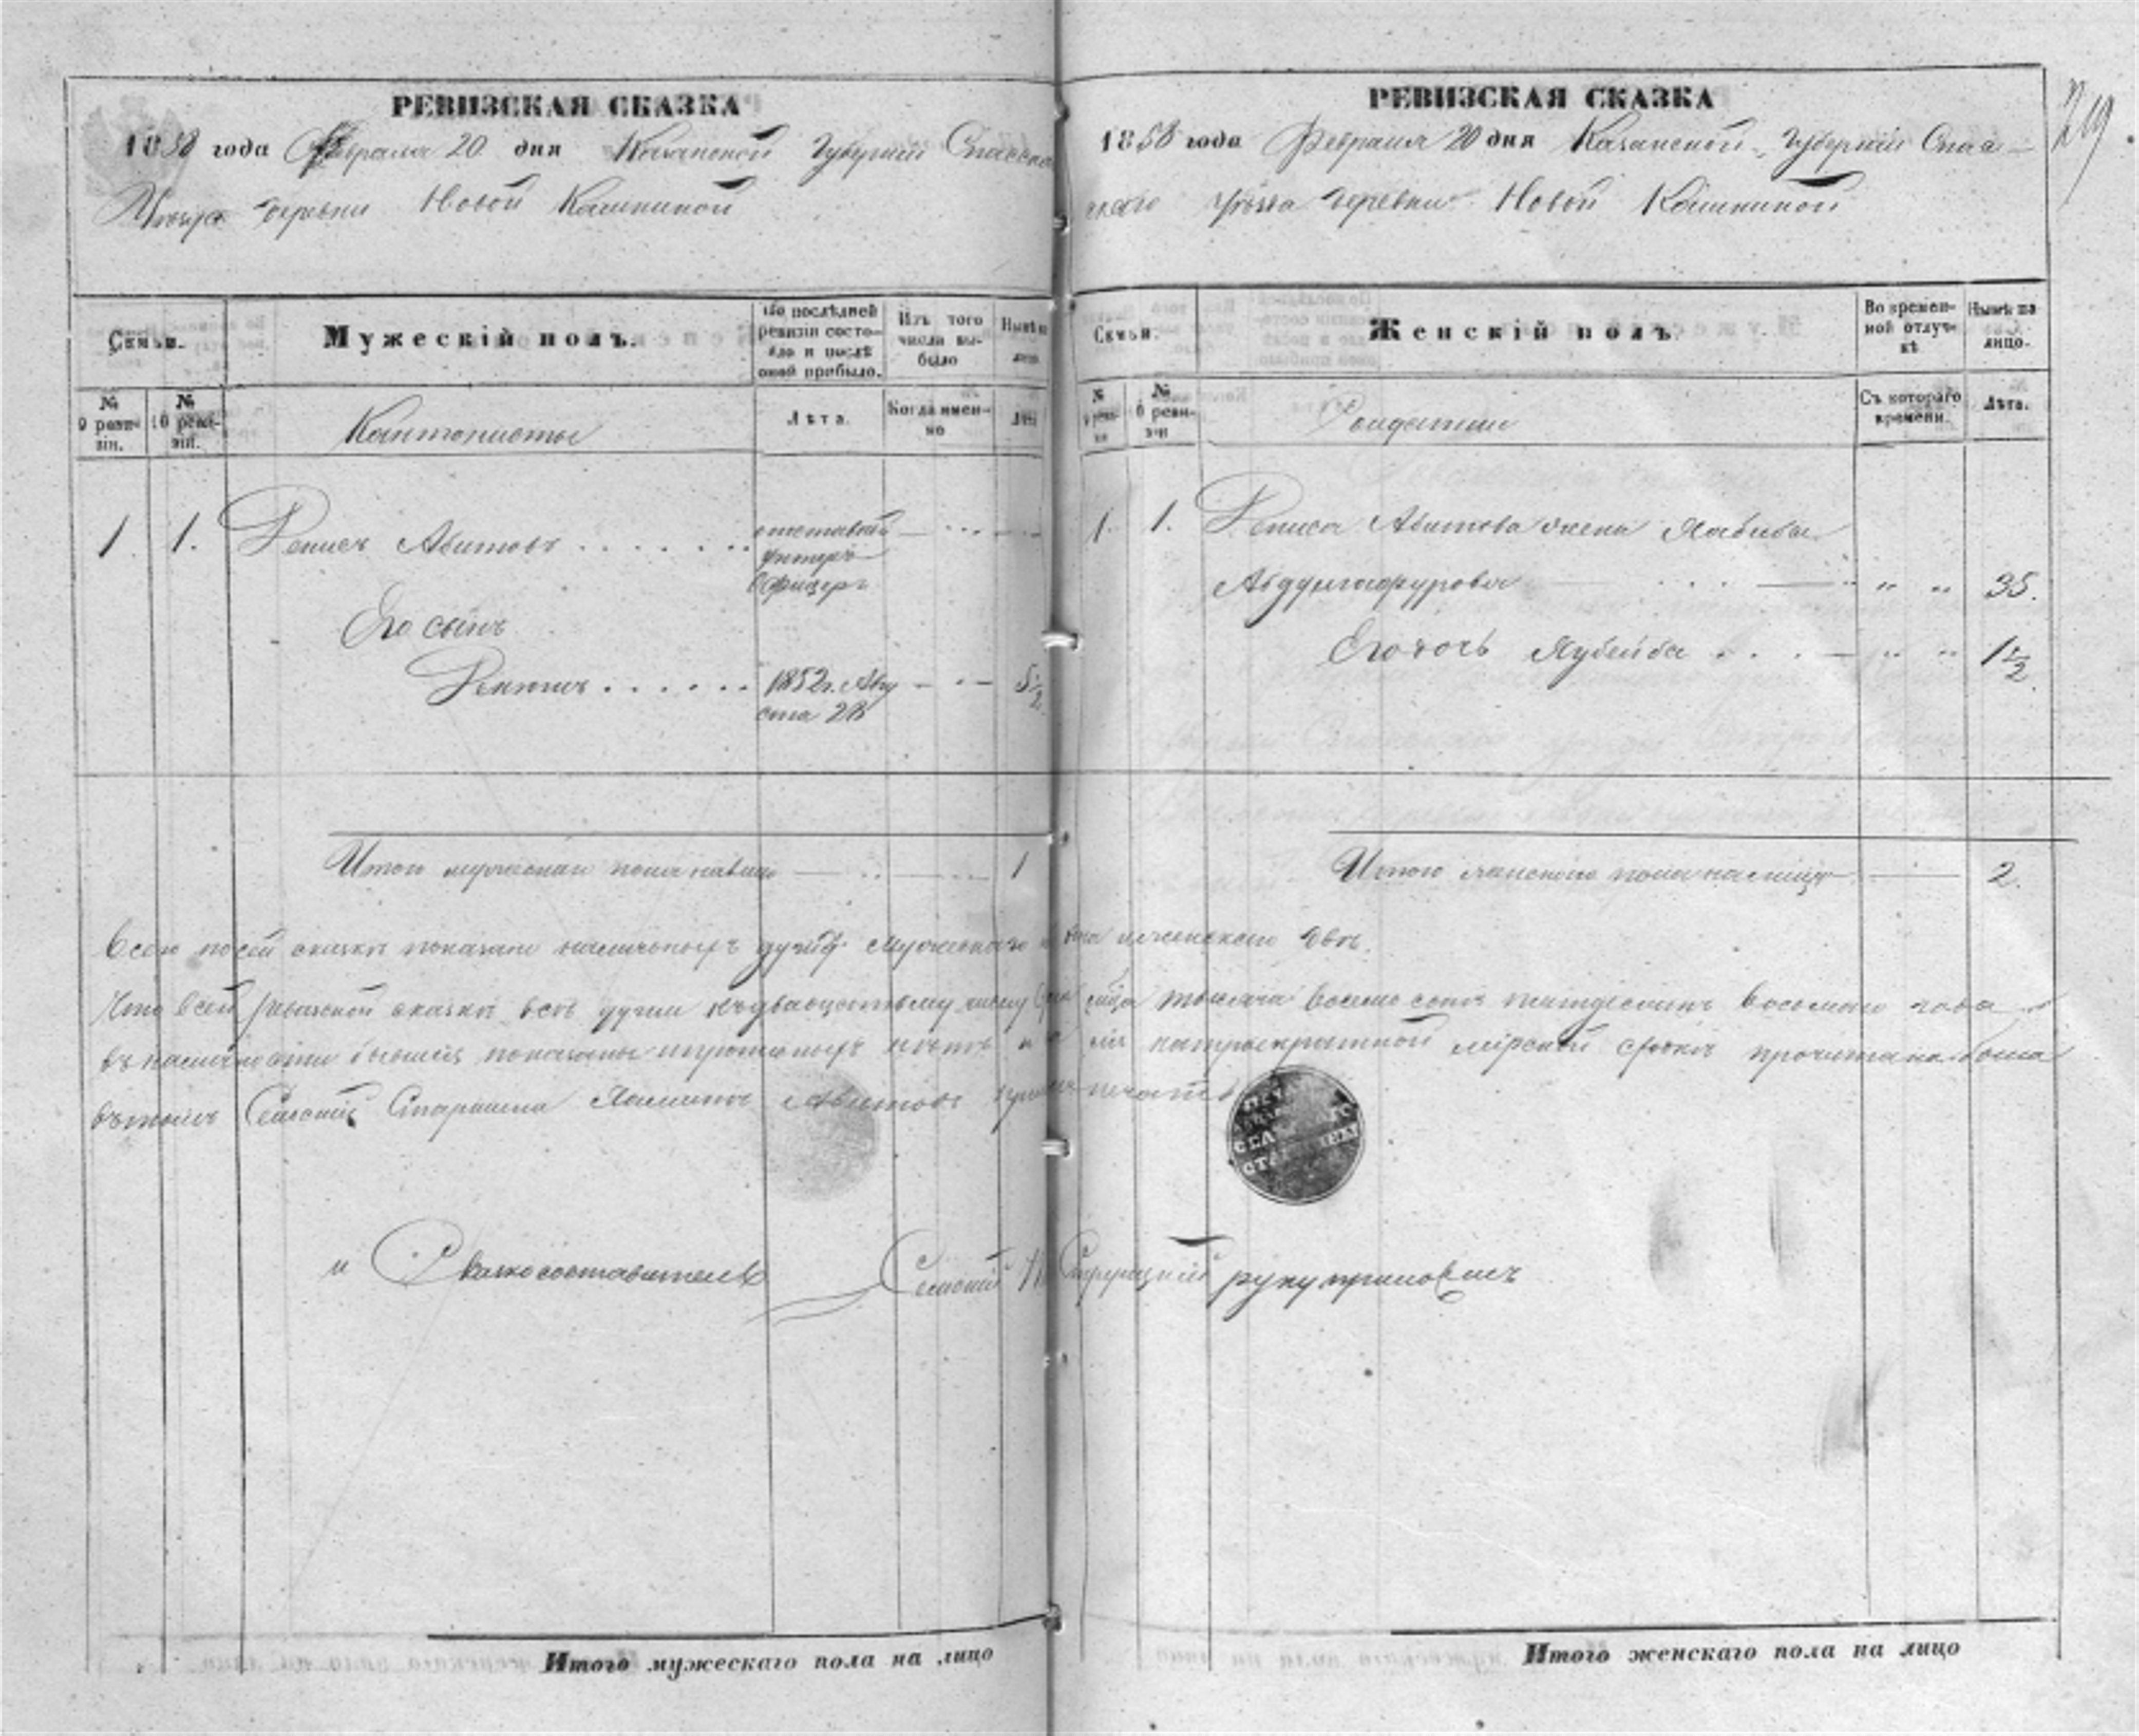 РЕВИЗСКАЯ СКАЗКА
1858 года Февраля 20 дня Казанской Губернии Спасска
Уѣзда деревни Новой Камкиной
Семьи.
Мужескій полъ.
По послѣдней ревизіи состояло и послѣ оной прибыло.
Изъ того числа выбыло
Нынѣ на лицо.
№ 9 ревизіи.
№ 10 ревизіи.
Кантонисты
Лѣта.
Когда именно
Лѣта
1. 1. Авитовъ . . . . . . отставной
унтеръ
офицеръ
Его сынъ
1852 г. Авгу
ста 28 5½
Итого мужеска пола налицо 1
РЕВИЗСКАЯ СКАЗКА
1858 года Февраля 20 дня Казанской Губерніи Спас-
скаго Уѣзда деревни Новой Камкиной
719.
Семьи.
Женскій полъ.
Во временной отлучкѣ
Нынѣ на лицо.
№ 9 ревизіи
№ 10 ревизіи
Солдатки
Съ котораго времени.
Лѣта.
1. 1. Авитова жена
Абдулгафурова " " 35.
Его дочь Зубейба . . . " " 1½
Итого женскаго пола налицо 2.
Всего по сей сказкѣ показано наличныхъ душъ мужескаго одна и женскаго двѣ.
Что в сей ревизской сказкѣ всѣ души къ двадцатому числу тысяча восемь сотъ пятьдесятъ восьмаго года
въ наличности бывшія показаны и пропущенныхъ нѣтъ на мірской сходкѣ прочитана была
въ томъ Сельскій Старшина Авитовъ печать
СЕЛ
СТА
и Сказкосоставитель Сельскій руку приложилъ
Итого мужескаго пола на лицо
Итого женскаго пола на лицо